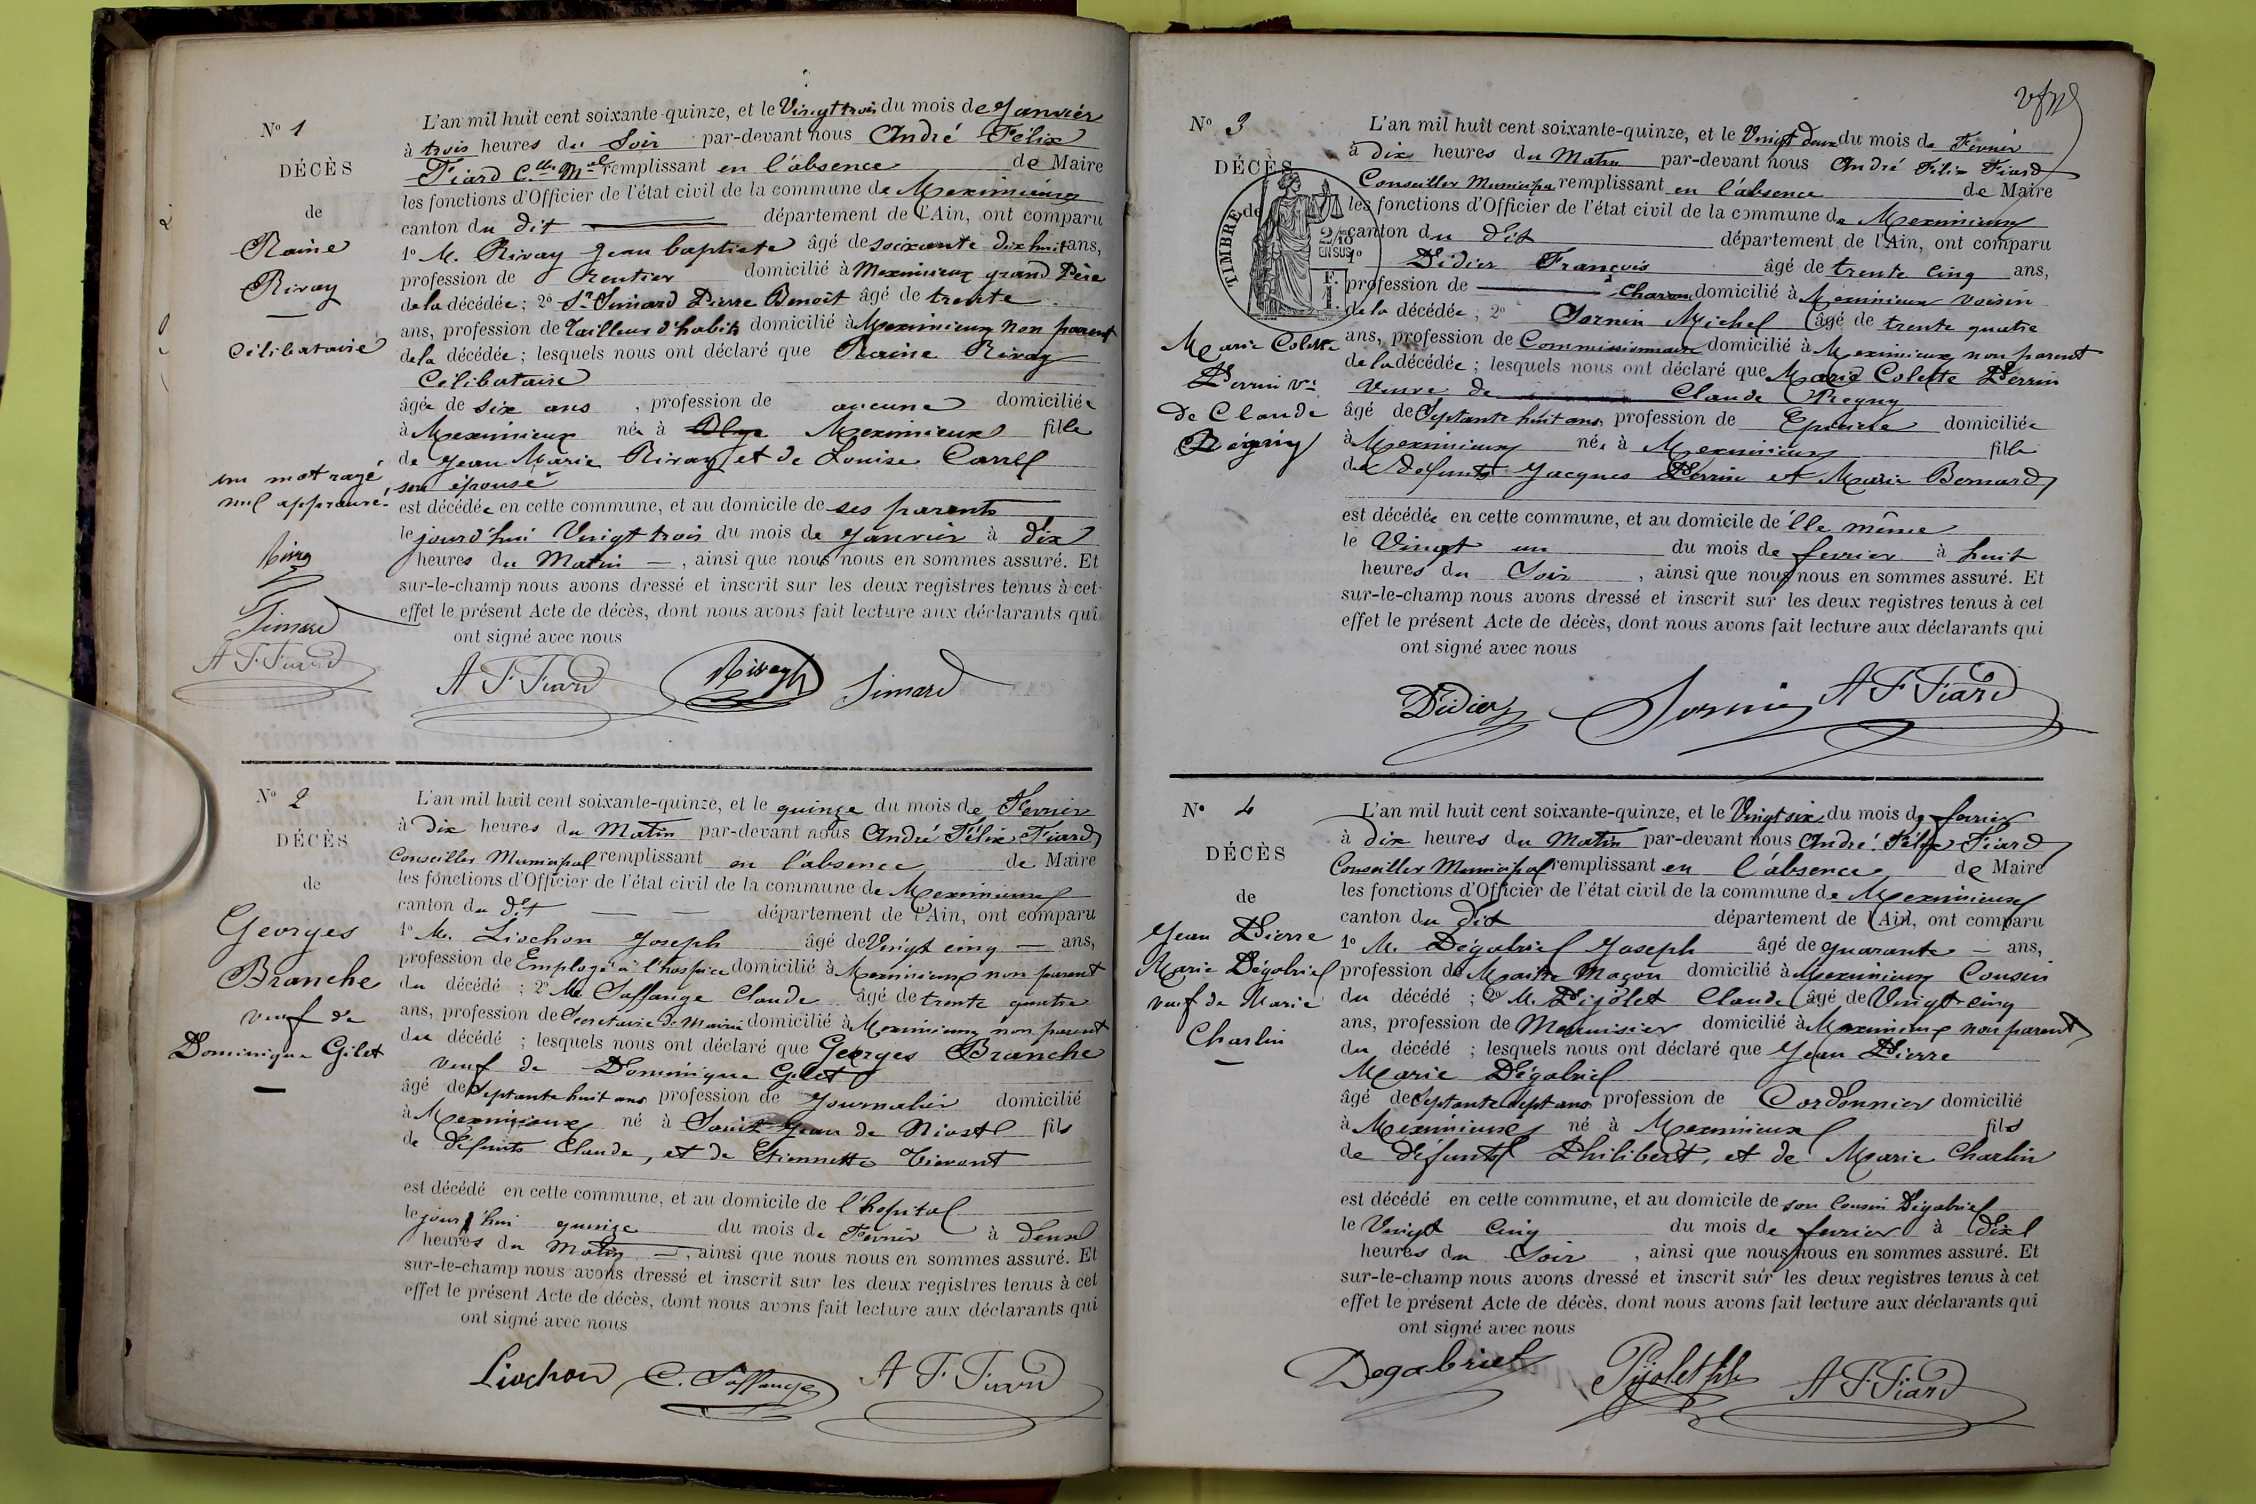 N° 1
DÉCÈS
de
Raine
Rivay
Célibataire
un mot rayé
nul approuvé.
Rivay
Simard
A F Fiard
L'an mil huit cent soixante-quinze, et le Vingt trois du mois de Janvier
à trois heures du Soir par-devant nous André Félix
Fiard C.ller M.al remplissant en l'absence de Maire
les fonctions d'Officier de l'état civil de la commune de Meximieux
canton du dit département de l'Ain, ont comparu
1° M. Rivay Jean baptiste âgé de soixante dix huit ans,
profession de Rentier domicilié à Meximieux grand Père
de la décédée ; 2° Sr Simard Pierre Benoît âgé de trente
ans, profession de Tailleur d'habits domicilié à Meximieux non parent
de la décédée ; lesquels nous ont déclaré que Raine Rivay
Célibataire
âgée de six ans , profession de aucune domiciliée
à Meximieux née à Meximieux fille
de Jean Marie Rivay et de Louise Carrel
son épouse
est décédée en cette commune, et au domicile de ses parents
le jourd'hui Vingt trois du mois de Janvier à dix
heures du Matin , ainsi que nous nous en sommes assuré. Et
sur-le-champ nous avons dressé et inscrit sur les deux registres tenus à cet
effet le présent Acte de décès, dont nous avons fait lecture aux déclarants qui
ont signé avec nous
A F Fiard Rivay Simard
N° 2
DÉCÈS
de
Georges
Branche
veuf de
Dominique Gilet
L'an mil huit cent soixante-quinze, et le quinze du mois de Fevrier
à dix heures du Matin par-devant nous André Félix Fiard
Conseiller Municipal remplissant en l'absence de Maire
les fonctions d'Officier de l'état civil de la commune de Meximieux
canton du dit département de l'Ain, ont comparu
1° M. Liochon Joseph âgé de Vingt cinq ans,
profession de Employé à l'hospice domicilié à Meximieux non parent
du décédé ; 2° M. Saffange Claude âgé de trente quatre
ans, profession de Secretaire de Mairie domicilié à Meximieux non parent
du décédé ; lesquels nous ont déclaré que Georges Branche
veuf de Dominique Gilet
âgé de Septante huit ans profession de Journalier domicilié
à Meximieux né à Saint Jean de Niost fils
de défunts Claude, et de Etiennette
est décédé en cette commune, et au domicile de l'hopital
le jourd'hui quinze du mois de Fevrier à deux
heures du Matin , ainsi que nous nous en sommes assuré. Et
sur-le-champ nous avons dressé et inscrit sur les deux registres tenus à cet
effet le présent Acte de décès, dont nous avons fait lecture aux déclarants qui
ont signé avec nous
Liochon C. Saffange A F Fiard
N° 3
DÉCÈS
de
TIMBRE
2/10
EN SUS
F.
1.
Marie Colette
Perrin ve
de Claude
Régny
L'an mil huit cent soixante-quinze, et le Vingt deux du mois de Fevrier
à dix heures du Matin par-devant nous André Félix Fiard
Conseiller Municipal remplissant en l'absence de Maire
les fonctions d'Officier de l'état civil de la commune de Meximieux
canton du dit département de l'Ain, ont comparu
1° Didier François âgé de trente cinq ans,
profession de Charron domicilié à Meximieux voisin
de la décédée ; 2° Sornin Michel âgé de trente quatre
ans, profession de Commissionnaire domicilié à Meximieux non parent
de la décédée ; lesquels nous ont déclaré que Marie Colette Perrin
Veuve de Claude Regny
âgé de Septante huit ans profession de Epiciere domiciliée
à Meximieux née à Meximieux fille
de defunts Jacques Perrin et Marie Bernard
est décédée en cette commune, et au domicile de elle même
le Vingt un du mois de fevrier à huit
heures du Soir , ainsi que nous nous en sommes assuré. Et
sur-le-champ nous avons dressé et inscrit sur les deux registres tenus à cet
effet le présent Acte de décès, dont nous avons fait lecture aux déclarants qui
ont signé avec nous
Didier Sornin A F Fiard
N° 4
DÉCÈS
de
Jean Pierre
Marie Dégabriel
veuf de Marie
Charlin
L'an mil huit cent soixante-quinze, et le Vingt six du mois de fevrier
à dix heures du Matin par-devant nous André Félix Fiard
Conseiller Municipal remplissant en l'absence de Maire
les fonctions d'Officier de l'état civil de la commune de Meximieux
canton du dit département de l'Ain, ont comparu
1° M. Dégabriel Joseph âgé de quarante ans,
profession de Maitre Maçon domicilié à Meximieux Cousin
du décédé ; 2° M. Pijolet Claude âgé de Vingt-cinq
ans, profession de Menuisier domicilié à Meximieux non parent
du décédé ; lesquels nous ont déclaré que Jean Pierre
Marie Dégabriel
âgé de Septante sept ans profession de Cordonnier domicilié
à Meximieux né à Meximieux fils
de défunts Philibert, et de Marie Charlin
est décédé en cette commune, et au domicile de son Cousin Dégabriel
le Vingt Cinq du mois de fevrier à dix
heures du Soir , ainsi que nous nous en sommes assuré. Et
sur-le-champ nous avons dressé et inscrit sur les deux registres tenus à cet
effet le présent Acte de décès, dont nous avons fait lecture aux déclarants qui
ont signé avec nous
Degabriel Pijolet fils A F Fiard